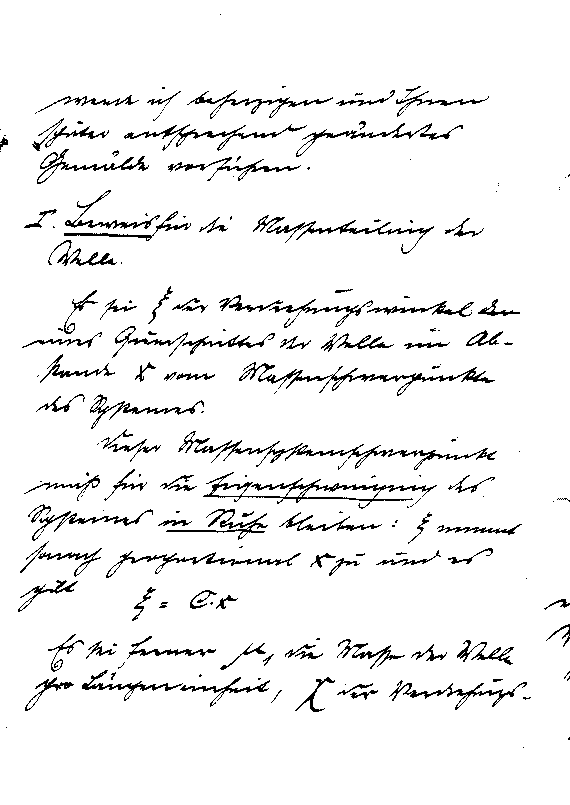 werde ich beherzigen und Ihnen
später entsprechend geändertes
Gemälde vorführen.
I. Beweis für die Massenteilung der
Welle.
Es sei ξ der Verdrehungswinkel
eines Querschnittes der Welle im Ab-
stande x vom Massenschwerpunkte
des Systemes.
Dieser Massensystemschwerpunkt
muß für die Eigenschwingung des
Systemes in Ruhe bleiben: ξ nimmt
sonach proportional x zu und es
gilt
ξ = C.x
Es sei ferner μ, die Masse der Welle
pro Längeneinheit, χ der Verdrehungs-